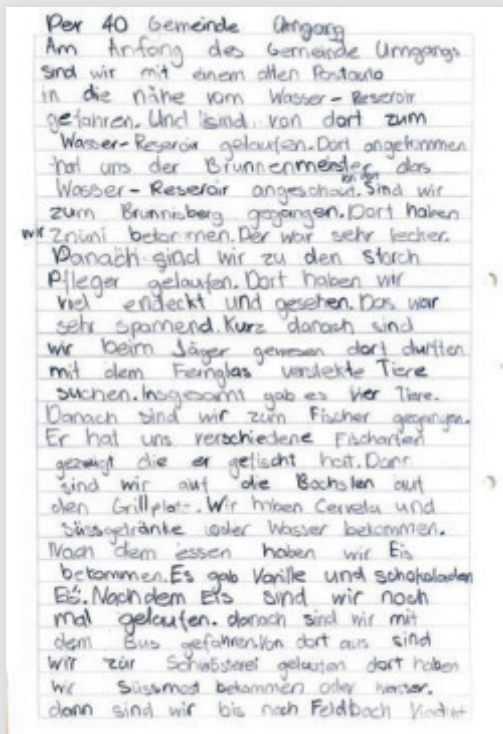 Der 40 Gemeinde Umgang
Am Anfang des Gemeinde Umgangs
sind wir mit einem alten Postauto
in die nähe vom Wasser-Reservoir
gefahren. Und sind von dort zum
Wasser-Reservoir gelaufen. Dort angekommen
hat uns der Brunnenmeister das
Wasser-Reservoir angeschaut. Sind wir
zum Brunnisberg gegangen. Dort haben
wir Znüni bekommen. Der war sehr lecker.
Danach sind wir zu den Storch
Pfleger gelaufen. Dort haben wir
viel endeckt und gesehen. Das war
sehr spannend. Kurz danach sind
wir beim Jäger gewesen dort durften
mit dem Fernglas verstekte Tiere
suchen. Insgesamt gab es vier Tiere.
Danach sind wir zum Fischer gegangen.
Er hat uns verschiedene Fischarten
gezeigt die er gefischt hat. Dann
sind wir auf die auf
den Grillplatz. Wir haben Cervela und
Süssgetränke oder Wasser bekommen.
Nach dem essen haben wir Eis
bekommen. Es gab Vanille und schokoladen
Eis. Nach dem Eis sind wir noch
mal gelaufen. danach sind wir mit
dem Bus gefahren. Von dort aus sind
wir zur gelaufen dort haben
wir Süssmost bekommen oder wasser.
dann sind wir bis nach Feldbach